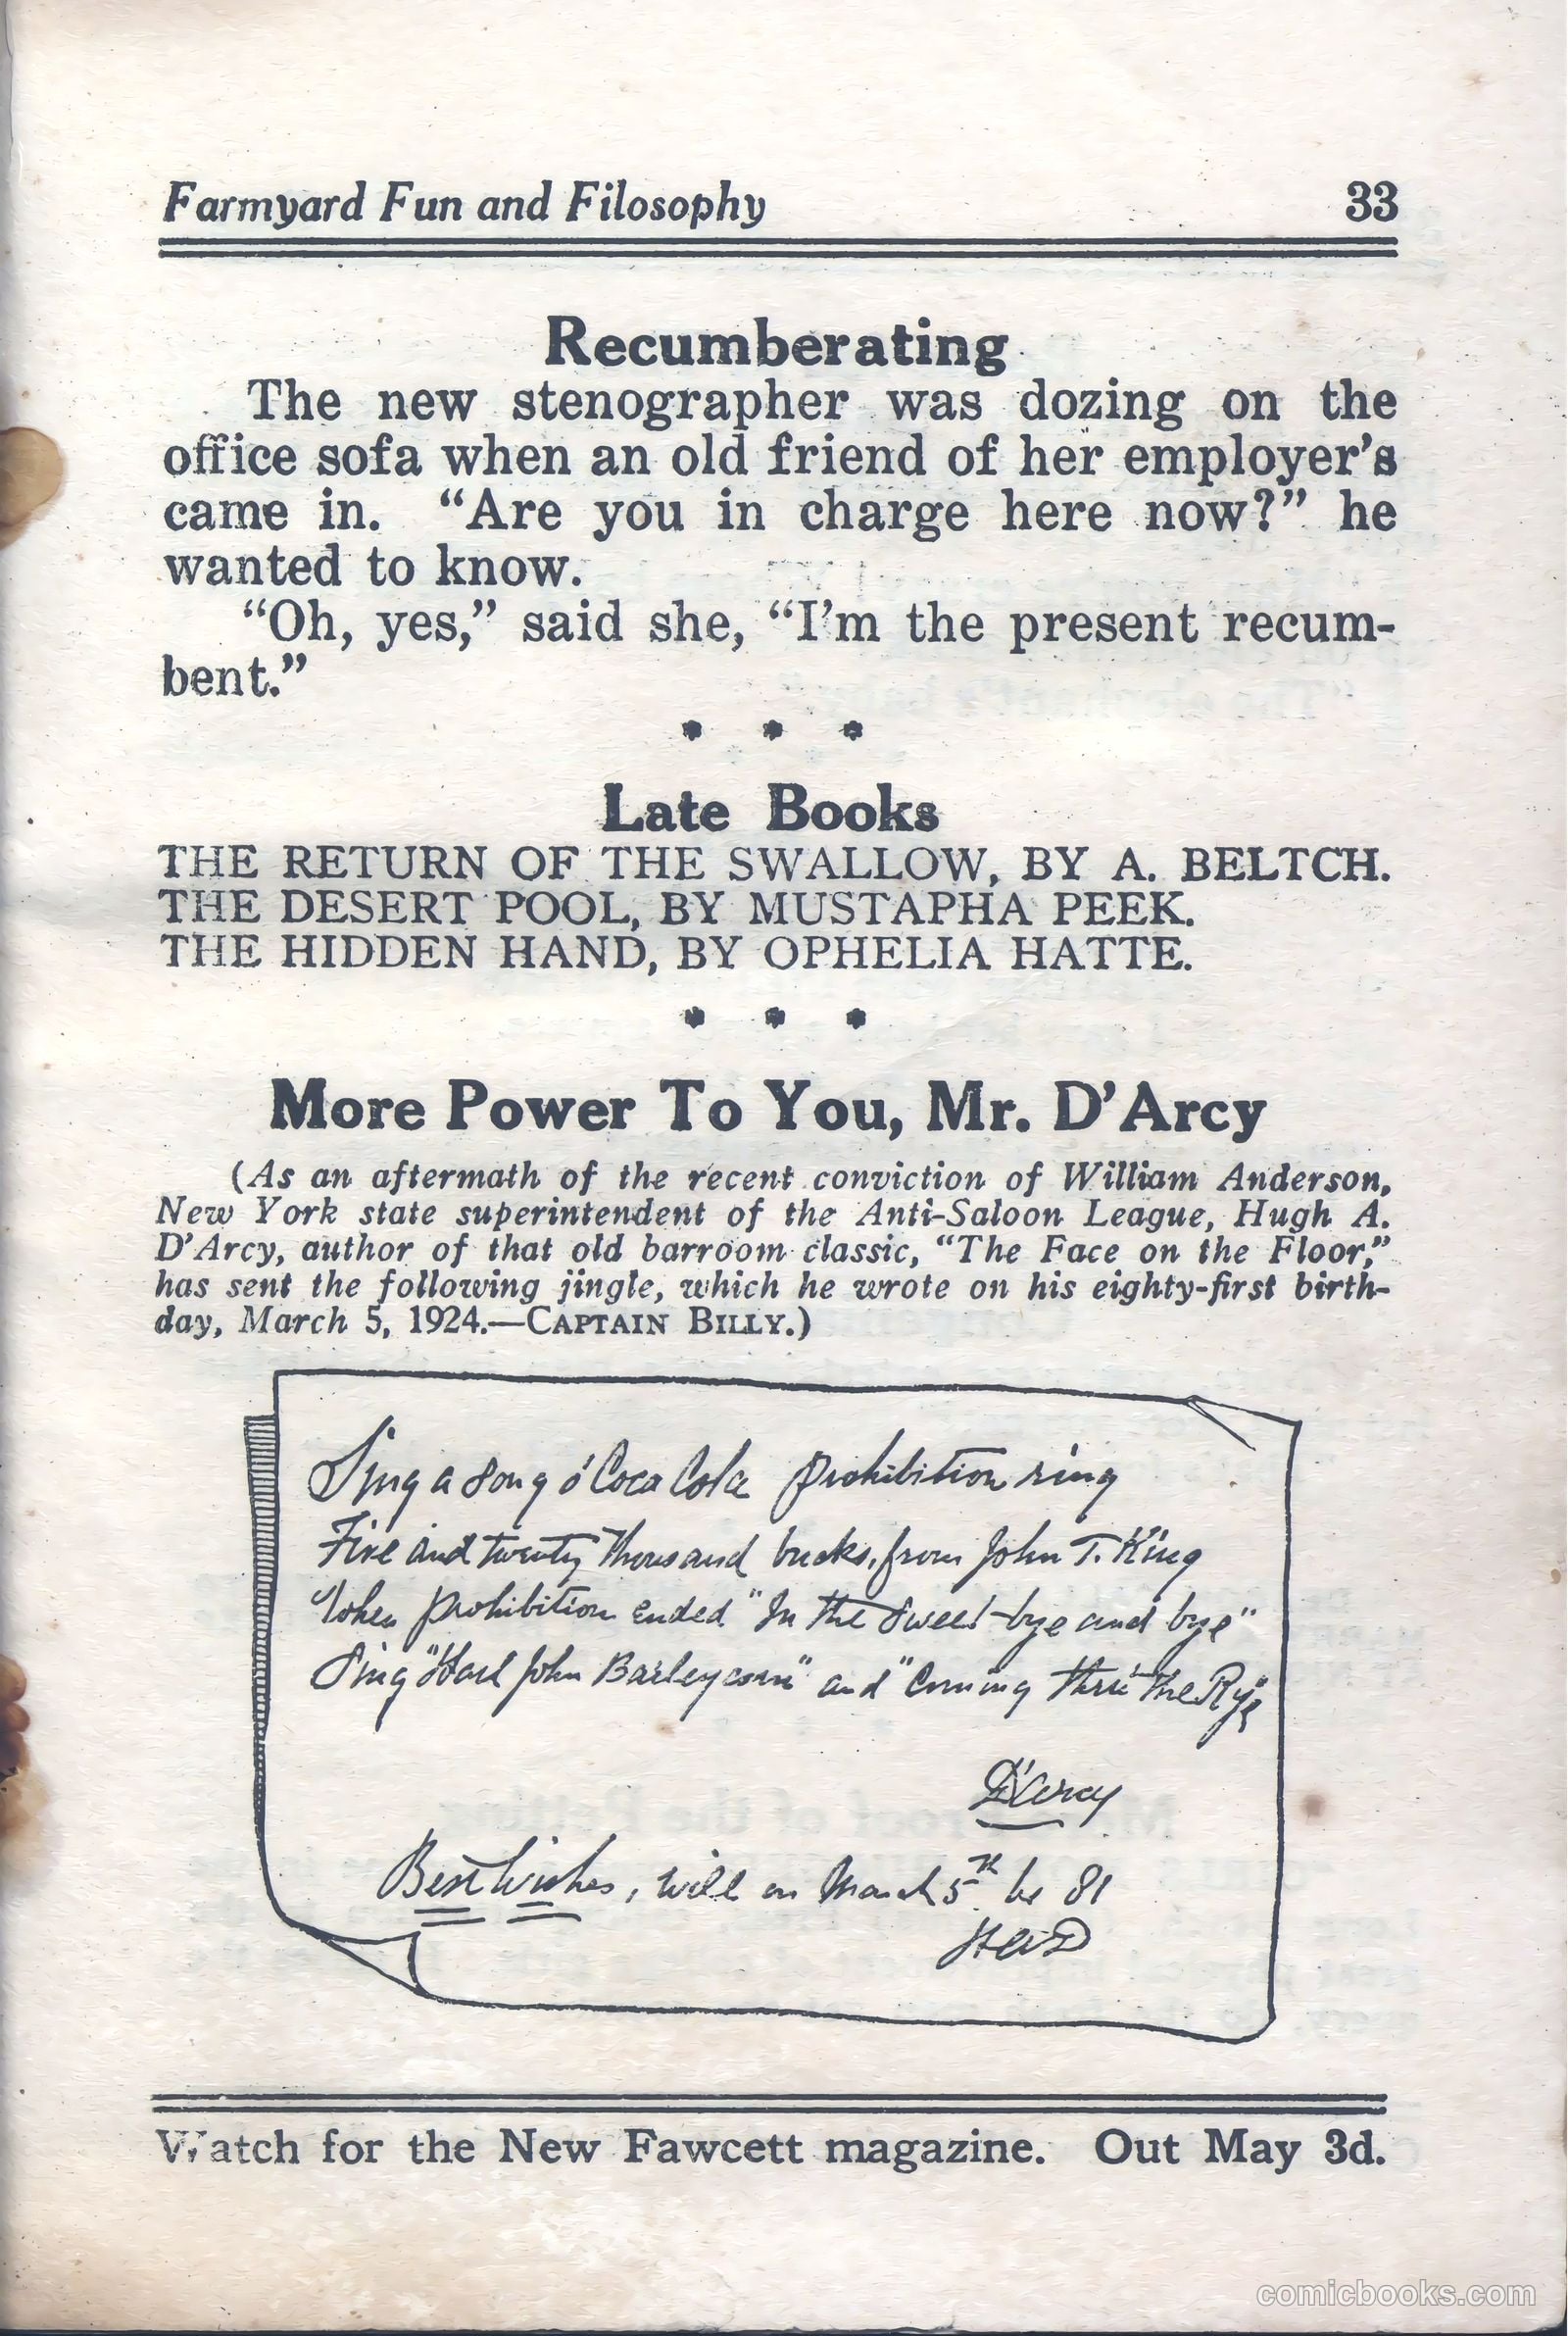 Farmyard Fun and Filosophy 33
Recumberating
The new stenographer was dozing on the
office sofa when an old friend of her employer's
came in. “Are you in charge here now?” he
wanted to know.
“Oh, yes,” said she, “I'm the present recum-
bent.”
* * *
Late Books
THE RETURN OF THE SWALLOW, BY A. BELTCH.
THE DESERT POOL, BY MUSTAPHA PEEK.
THE HIDDEN HAND, BY OPHELIA HATTE.
* * *
More Power To You, Mr. D'Arcy
(As an aftermath of the recent conviction of William Anderson,
New York state superintendent of the Anti-Saloon League, Hugh A.
D'Arcy, author of that old barroom classic, “The Face on the Floor,”
has sent the following jingle, which he wrote on his eighty-first birth-
day, March 5, 1924.—CAPTAIN BILLY.)
Sing a song o' Coca Cola prohibition ring
Five and twenty thousand bucks, from John T. King
When prohibition ended "In the sweet bye and bye"
Sing "Hail John Barleycorn" and "Coming thru the Rye"
D'Arcy
Best Wishes, will on March 5th be 81
HAD
Watch for the New Fawcett magazine. Out May 3d.
comicbooks.com